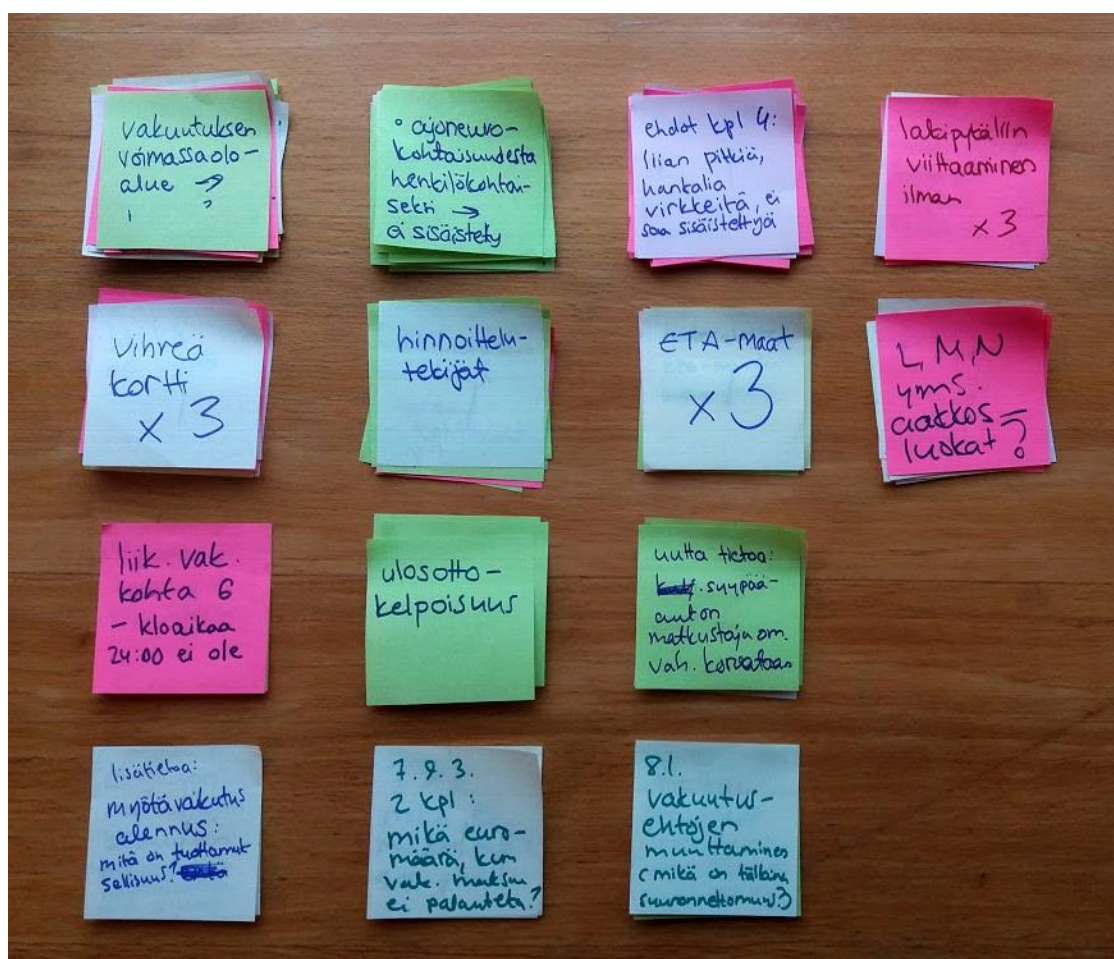 vakuutuksen
voimassaolo-
alue →
?
° ajoneuvo-
kohtaisuudesta
henkilökohtai-
seksi →
ei sisäistetty
ehdot kpl 4:
liian pitkiä,
hankalia
virkkeitä, ei
saa sisäistettyä
lakipykäliin
viittaaminen
ilman
x3
vihreä
kortti
x 3
hinnoittelu-
tekijät
ETA-maat
x3
L, M, N
yms.
aakkos-
luokat?
liik. vak.
kohta 6
- kloaikaa
24:00 ei ole
ulosotto-
kelpoisuus
uutta tietoa:
. syypää-
auton
matkustaja om.
vah. korvataan
lisätietoa:
myötävaikutus
alennus:
mitä on tuottamuk
sellisuus?
7.2.3.
2 kpl:
mikä euro-
määrä, kun
vak. maksu
ei palauteta?
8.1.
vakuutus-
ehtojen
muuttaminen
(mikä on tällöin
suuronnettomuus?)